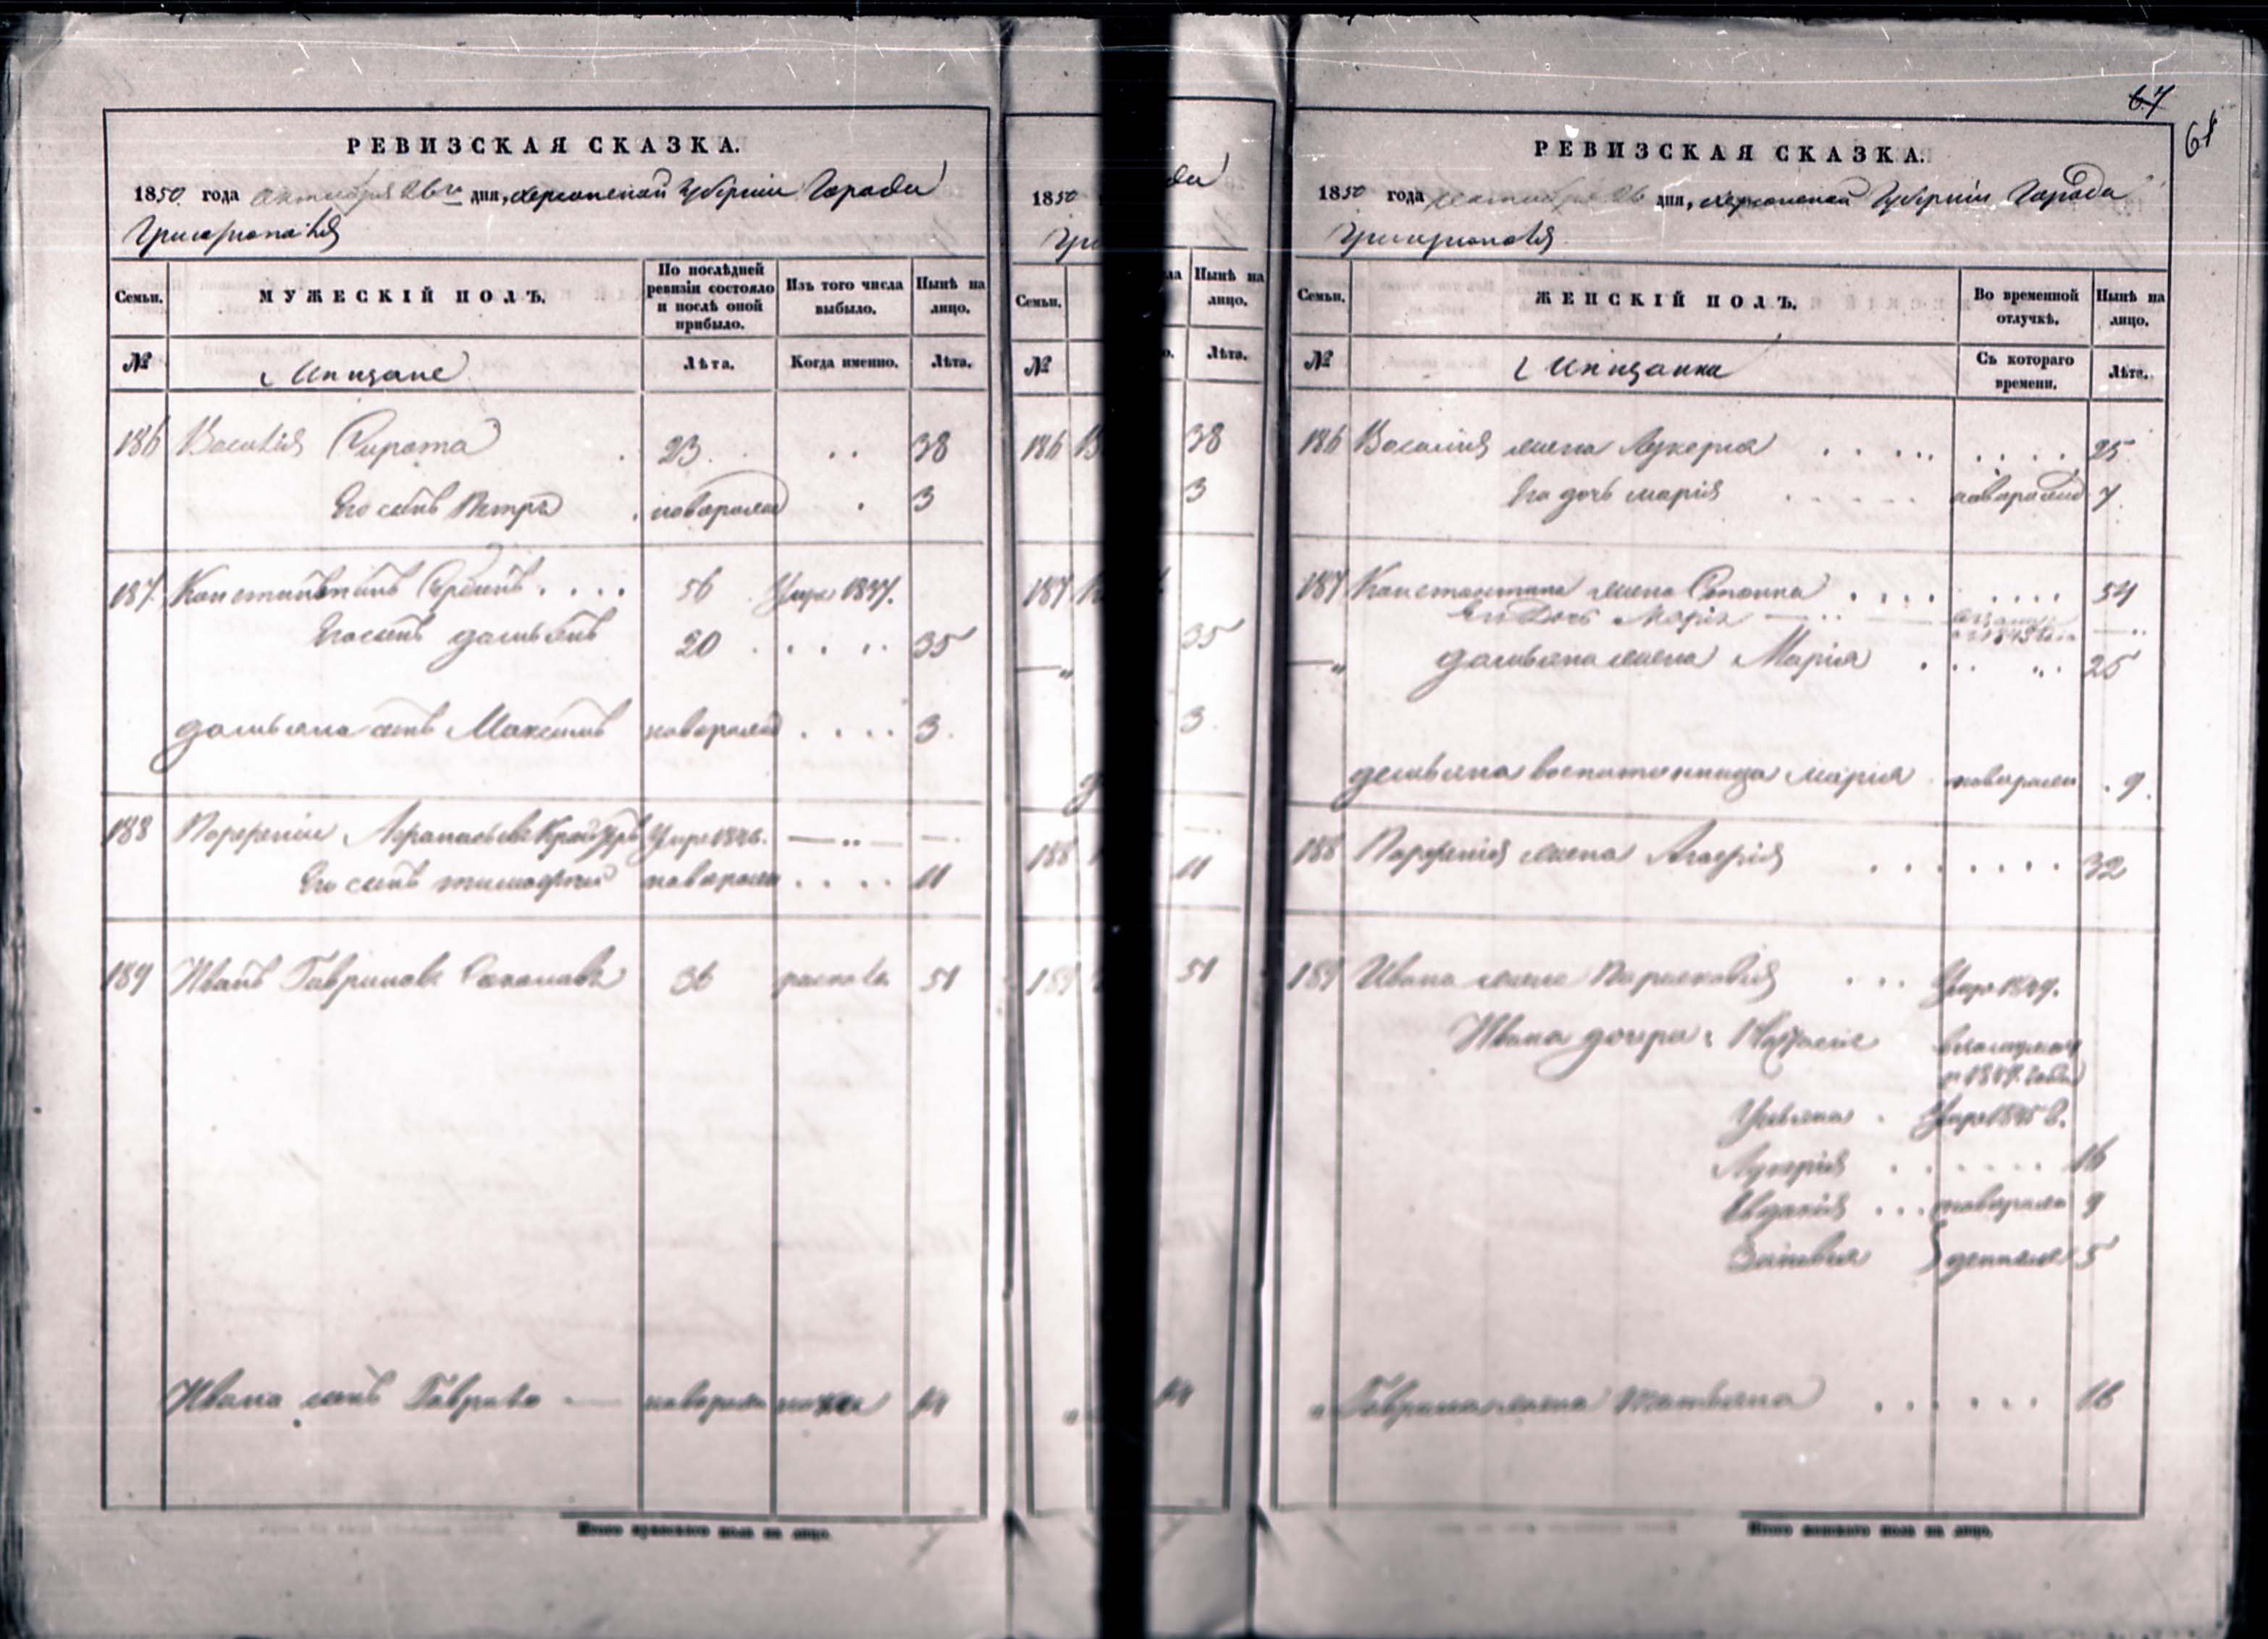 РЕВИЗСКАЯ СКАЗКА.
1850 года октября 26го дня, Херсонской Губерніи Города
Григоріополя
Семьи. МУЖЕСКІЙ ПОЛЪ. По послѣдней ревизіи состояло и послѣ оной прибыло. Изъ того числа выбыло. Нынѣ на лицо.
№ Мѣщане Лѣта. Когда именно. Лѣта.
186 Василій Сирота 23 38
Его сынъ Петръ новорожд 3
187 Константинъ 56 Умре 1847.
Его сынъ Дамьянъ 20 35
Дамьяна сынъ Максимъ новорожд 3.
188 Парфеній Афанасьевъ Умре 1846.
Его сынъ Тимофей новорожд 11
189 Иванъ Гавриловъ 36 51
Ивана сынъ Гаврило новорожд 14
Итого мужеска пола на лицо.
1850
Семьи.
№
186
187
188
189
Нынѣ на лицо.
Лѣта.
38
3
35
3.
11
51
14
67
РЕВИЗСКАЯ СКАЗКА.
1850 года октября 26 дня, Херсонской Губерніи Города
Григоріополя
Семьи. ЖЕНСКІЙ ПОЛЪ. Во временной отлучкѣ. Нынѣ на лицо.
№ Мѣщанки Съ котораго времени. Лѣта.
186 Василія жена Лукерья 25
Его дочь Марія новорожд 7
187 Константина жена 54
Его дочь Марія
Дамьяна жена Марія 25
Дамьяна воспитанница Марія новорожд 9.
188 Парфенія жена 32
189 Ивана жена Парасковія Умре 1849.
Ивана дочери Настасія
Ульяна Умре 1845 г.
16
Евдокія новорожд 9
5
Гаврила жена Татьяна 16
Итого женского пола на лицо.